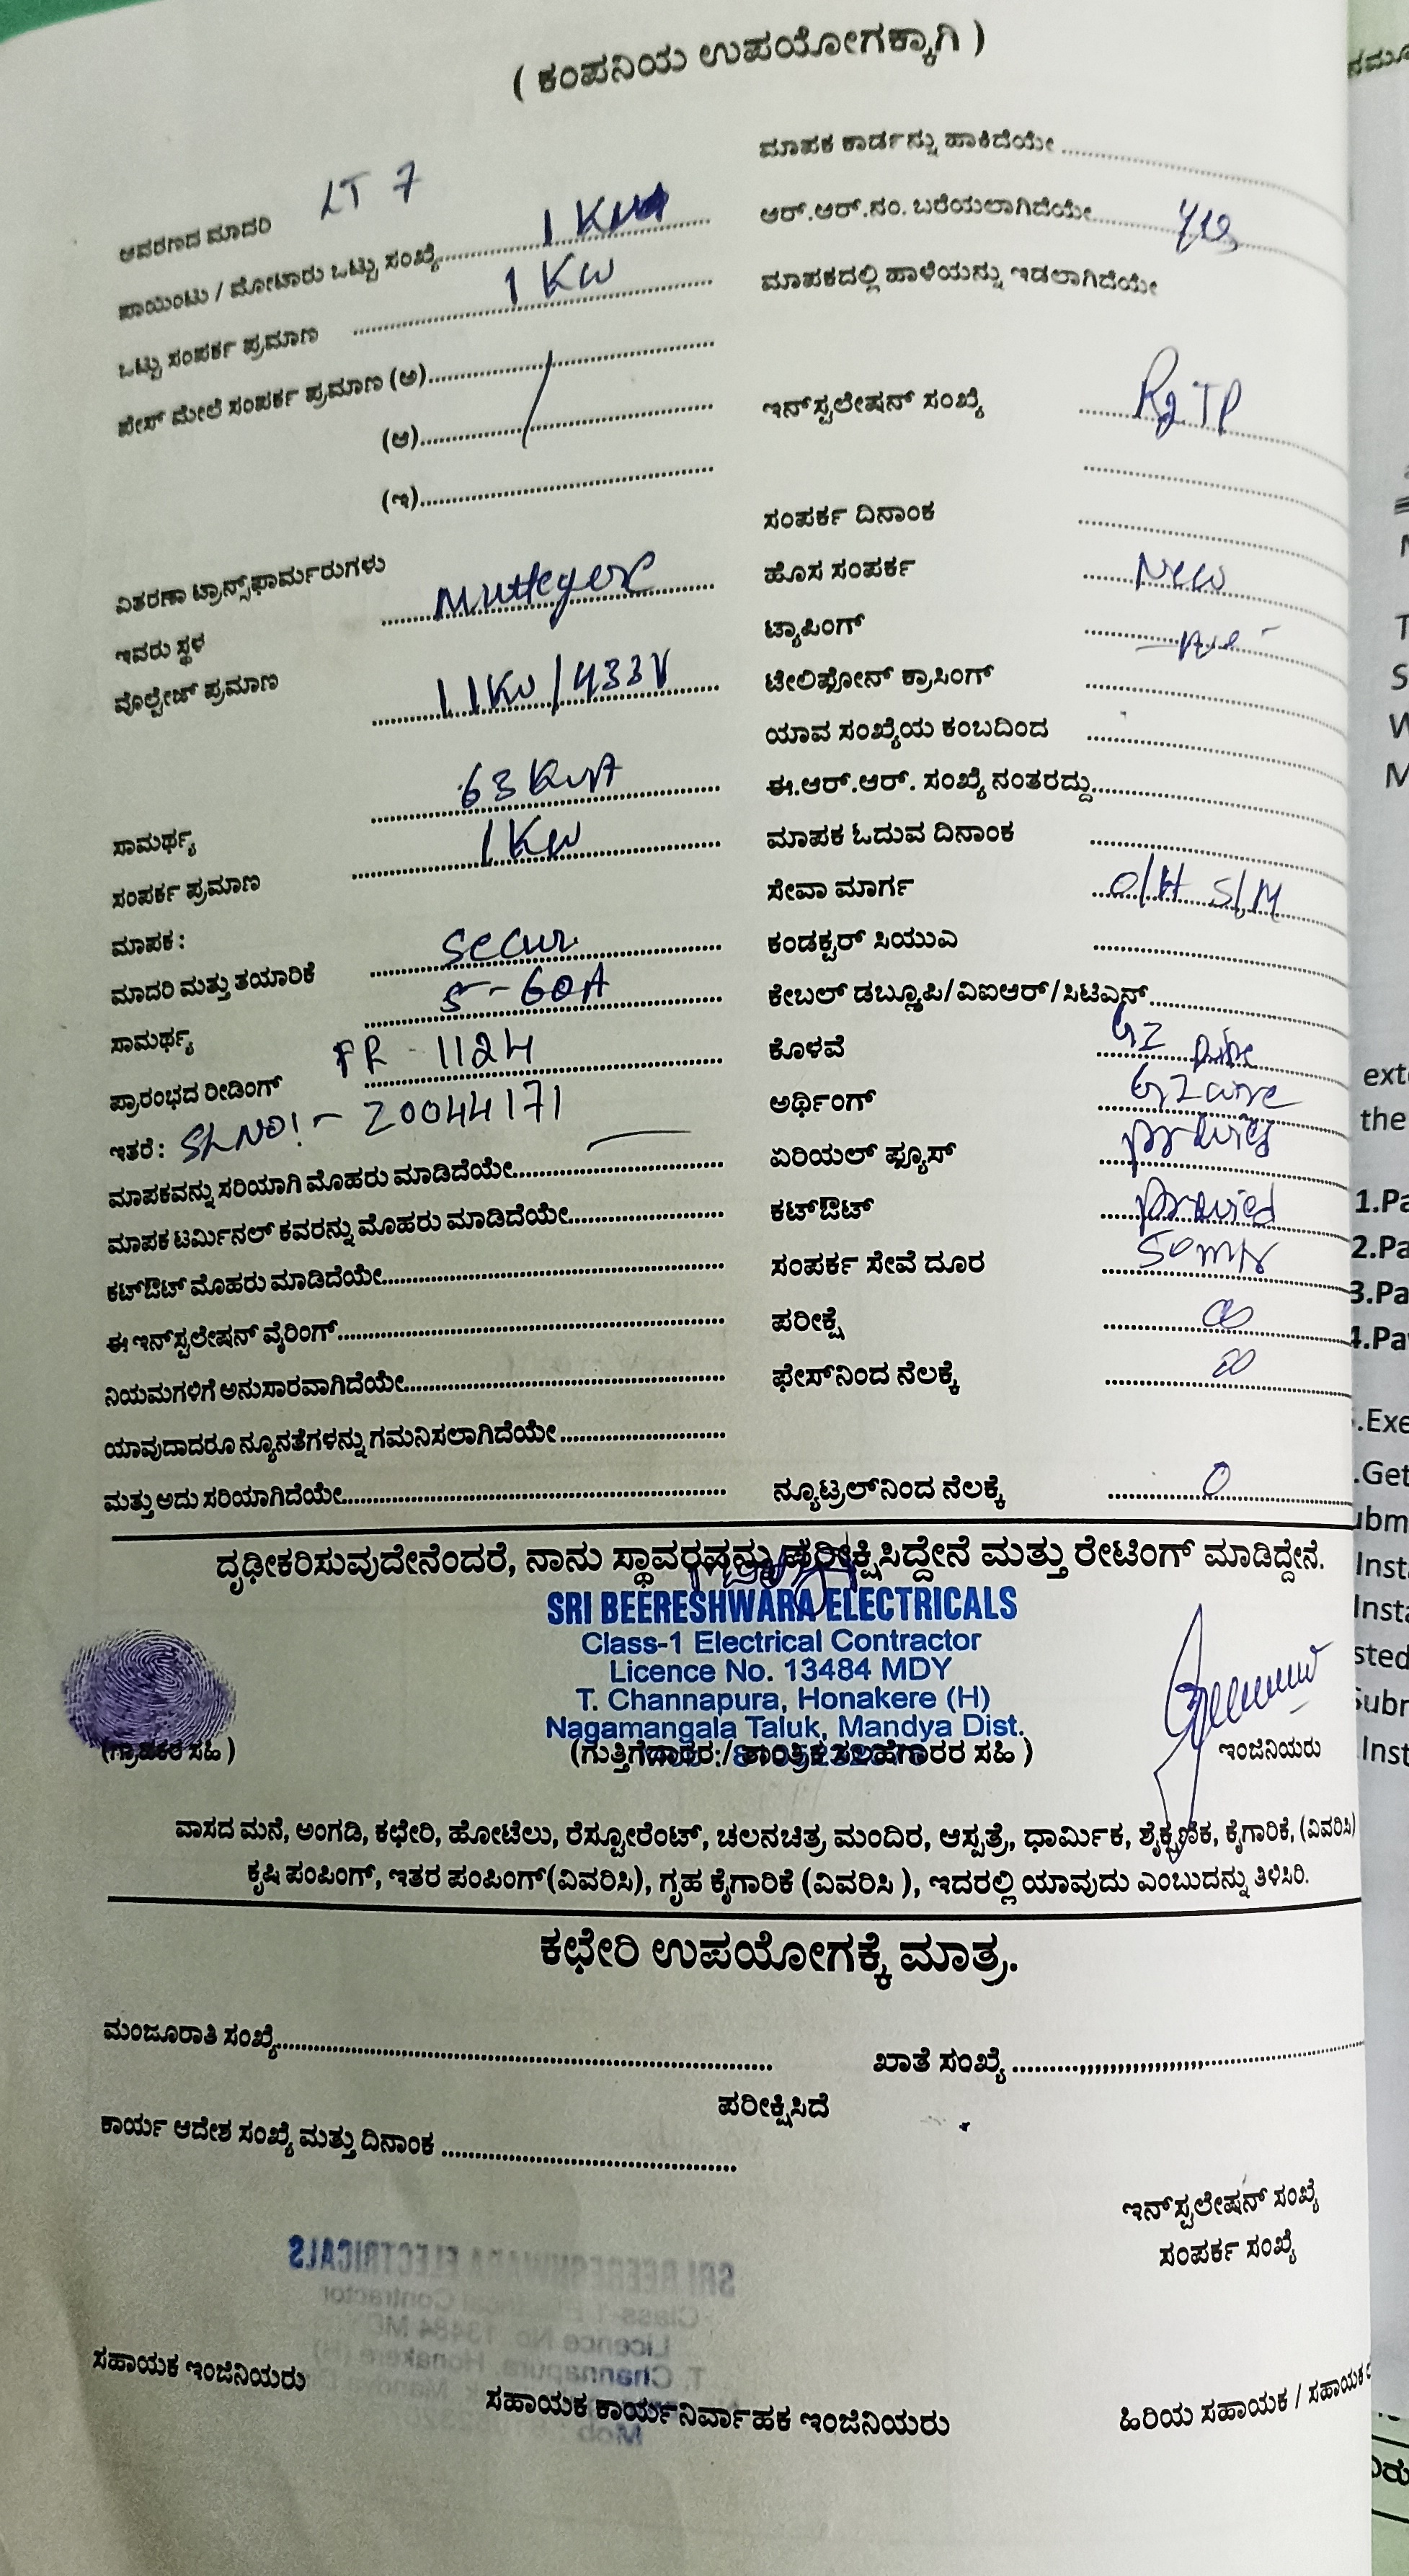 ( ಕಂಪನಿಯ ಉಪಯೋಗಕ್ಕಾಗಿ )
ಆವರಣದ ಮಾದರಿ LT 7
ಪಾಯಿಂಟು / ಮೋಟಾರು ಒಟ್ಟು ಸಂಖ್ಯೆ 1 KW
ಒಟ್ಟು ಸಂಪರ್ಕ ಪ್ರಮಾಣ 1 KW
ಫೇಸ್ ಮೇಲೆ ಸಂಪರ್ಕ ಪ್ರಮಾಣ (ಅ)
(ಆ)
(ಇ)
ವಿತರಣಾ ಟ್ರಾನ್ಸ್‌ಫಾರ್ಮರುಗಳು
ಇವರು ಸ್ಥಳ Muttegere
ವೊಲ್ಟೇಜ್ ಪ್ರಮಾಣ 11KV/433V
ಸಾಮರ್ಥ್ಯ 63 KVA
ಸಂಪರ್ಕ ಪ್ರಮಾಣ 1KW
ಮಾಪಕ :
ಮಾದರಿ ಮತ್ತು ತಯಾರಿಕೆ Secur
ಸಾಮರ್ಥ್ಯ 5-60A
ಪ್ರಾರಂಭದ ರೀಡಿಂಗ್ FR - 1124
ಇತರೆ : SL NO:- 20044171
ಮಾಪಕವನ್ನು ಸರಿಯಾಗಿ ಮೊಹರು ಮಾಡಿದೆಯೇ
ಮಾಪಕ ಟರ್ಮಿನಲ್ ಕವರನ್ನು ಮೊಹರು ಮಾಡಿದೆಯೇ
ಕಟ್‌ಔಟ್ ಮೊಹರು ಮಾಡಿದೆಯೇ
ಈ ಇನ್‌ಸ್ಟಲೇಷನ್ ವೈರಿಂಗ್
ನಿಯಮಗಳಿಗೆ ಅನುಸಾರವಾಗಿದೆಯೇ
ಯಾವುದಾದರೂ ನ್ಯೂನತೆಗಳನ್ನು ಗಮನಿಸಲಾಗಿದೆಯೇ
ಮತ್ತು ಅದು ಸರಿಯಾಗಿದೆಯೇ
ಮಾಪಕ ಕಾರ್ಡನ್ನು ಹಾಕಿದೆಯೇ
ಆರ್.ಆರ್.ನಂ. ಬರೆಯಲಾಗಿದೆಯೇ yes
ಮಾಪಕದಲ್ಲಿ ಹಾಳೆಯನ್ನು ಇಡಲಾಗಿದೆಯೇ
ಇನ್‌ಸ್ಟಲೇಷನ್ ಸಂಖ್ಯೆ
ಸಂಪರ್ಕ ದಿನಾಂಕ
ಹೊಸ ಸಂಪರ್ಕ New
ಟ್ಯಾಪಿಂಗ್
ಟೀಲಿಫೋನ್ ಕ್ರಾಸಿಂಗ್
ಯಾವ ಸಂಖ್ಯೆಯ ಕಂಬದಿಂದ
ಈ.ಆರ್.ಆರ್. ಸಂಖ್ಯೆ ನಂತರದ್ದು
ಮಾಪಕ ಓದುವ ದಿನಾಂಕ
ಸೇವಾ ಮಾರ್ಗ O/H S/M
ಕಂಡಕ್ಟರ್ ಸಿಯುಎ
ಕೇಬಲ್ ಡಬ್ಲೂಪಿ/ವಿಐಆರ್/ಸಿಟಿಎಸ್
ಕೊಳವೆ GI pipe
ಅರ್ಥಿಂಗ್ GI wire
ಏರಿಯಲ್ ಫ್ಯೂಸ್
ಕಟ್‌ಔಟ್ provied
ಸಂಪರ್ಕ ಸೇವೆ ದೂರ 50 mtr
ಪರೀಕ್ಷೆ
ಫೇಸ್‌ನಿಂದ ನೆಲಕ್ಕೆ
ನ್ಯೂಟ್ರಲ್‌ನಿಂದ ನೆಲಕ್ಕೆ 0
ದೃಢೀಕರಿಸುವುದೇನೆಂದರೆ, ನಾನು ಸ್ಥಾವರವನ್ನು ಪರೀಕ್ಷಿಸಿದ್ದೇನೆ ಮತ್ತು ರೇಟಿಂಗ್ ಮಾಡಿದ್ದೇನೆ.
SRI BEERESHWARA ELECTRICALS
Class-1 Electrical Contractor
Licence No. 13484 MDY
T. Channapura, Honakere (H)
Nagamangala Taluk, Mandya Dist.
(ಗ್ರಾಹಕರ ಸಹಿ ) (ಗುತ್ತಿಗೆದಾರರ / ತಾಂತ್ರಿಕ ಸಲಹೆಗಾರರ ಸಹಿ ) ಇಂಜಿನಿಯರು
ವಾಸದ ಮನೆ, ಅಂಗಡಿ, ಕಛೇರಿ, ಹೋಟೆಲು, ರೆಸ್ಟೋರೆಂಟ್, ಚಲನಚಿತ್ರ ಮಂದಿರ, ಆಸ್ಪತ್ರೆ, ಧಾರ್ಮಿಕ, ಶೈಕ್ಷಣಿಕ, ಕೈಗಾರಿಕೆ, (ವಿವರಿಸಿ)
ಕೃಷಿ ಪಂಪಿಂಗ್, ಇತರ ಪಂಪಿಂಗ್(ವಿವರಿಸಿ), ಗೃಹ ಕೈಗಾರಿಕೆ (ವಿವರಿಸಿ ), ಇದರಲ್ಲಿ ಯಾವುದು ಎಂಬುದನ್ನು ತಿಳಿಸಿರಿ.
ಕಛೇರಿ ಉಪಯೋಗಕ್ಕೆ ಮಾತ್ರ.
ಮಂಜೂರಾತಿ ಸಂಖ್ಯೆ ಖಾತೆ ಸಂಖ್ಯೆ
ಪರೀಕ್ಷಿಸಿದೆ
ಕಾರ್ಯ ಆದೇಶ ಸಂಖ್ಯೆ ಮತ್ತು ದಿನಾಂಕ
ಇನ್‌ಸ್ಟಲೇಷನ್ ಸಂಖ್ಯೆ
ಸಂಪರ್ಕ ಸಂಖ್ಯೆ
ಸಹಾಯಕ ಇಂಜಿನಿಯರು ಸಹಾಯಕ ಕಾರ್ಯನಿರ್ವಾಹಕ ಇಂಜಿನಿಯರು ಹಿರಿಯ ಸಹಾಯಕ / ಸಹಾಯಕ